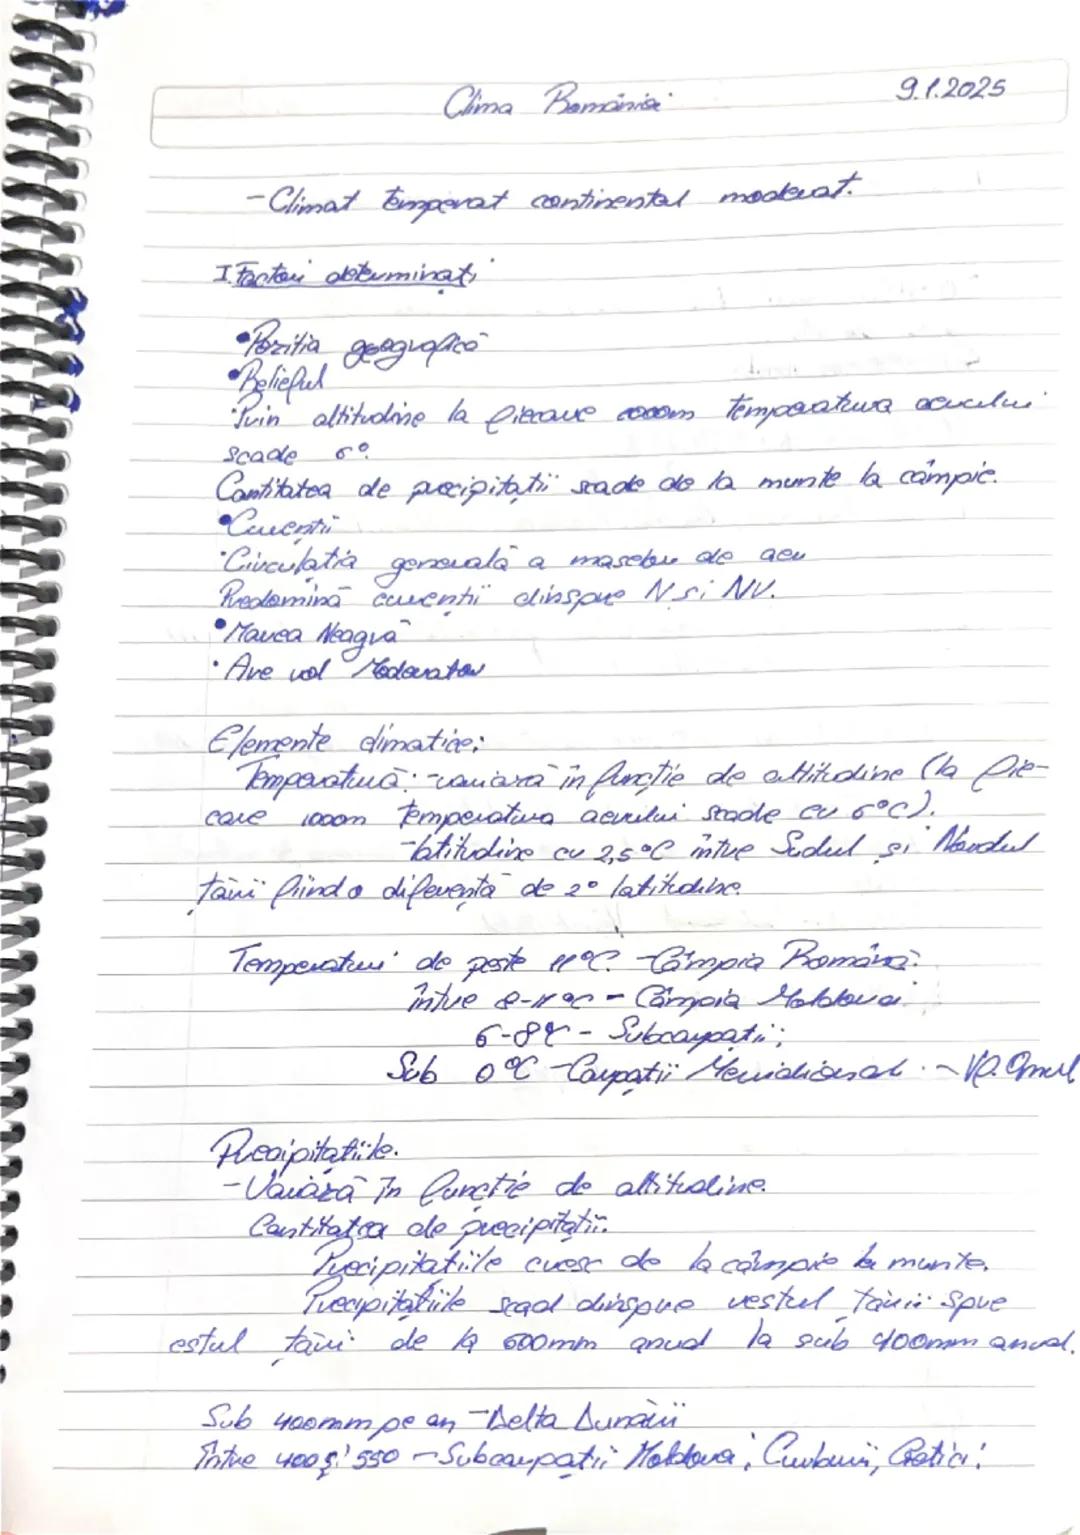 Clima României 9.1.2025
-Climat temperat continental moderat.
I. Factori determinați
•Poziția geografică
•Relieful
•Prin altitudine la fiecare 1000m temperatura aerului
scade 6°.
Cantitatea de precipitații scade de la munte la câmpie.
•Curenții
•Circulația generală a maselor de aer
Predomină curenții dinspre N și NV.
•Marea Neagră
•Are rol Moderator
Elemente climatice:
Temperatură: -variază în funcție de altitudine (la fie-
care 1000m temperatura aerului scade cu 6°C).
-latitudine cu 2,5°C între Sudul și Nordul
țării fiind o diferență de 2° latitudine.
Temperaturi de peste 11°C. -Câmpia Română.
între 8-11°C - Câmpia Moldovei
6-8°C - Subcarpații;
Sub 0°C -Carpații Meridionali - Vf. Omul
Precipitațiile.
-Variază în funcție de altitudine.
Cantitatea de precipitații.
Precipitațiile cresc de la câmpie la munte.
Precipitațiile scad dinspre vestul țării spre
estul țării de la 600mm anual la sub 400mm anual.
Sub 400mm pe an -Delta Dunării
Între 400 și 550 -Subcarpații Moldovei, Curburii, Getici;